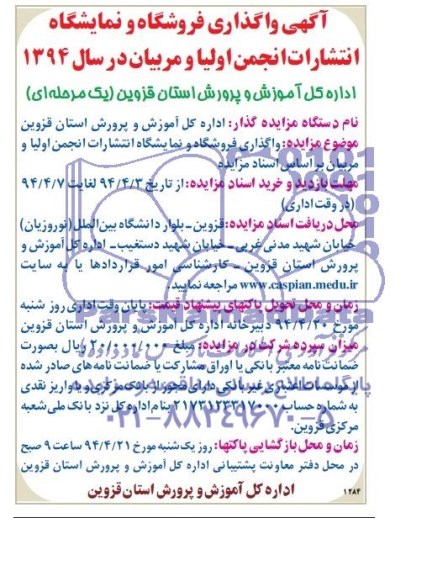 آگهی واگذاری فروشگاه و نمایشگاه
انتشارات انجمن اولیا و مربیان در سال ۱۳۹۴
اداره کل آموزش و پرورش استان قزوین (یک مرحله‌ای)
نام دستگاه مزایده گذار: اداره کل آموزش و پرورش استان قزوین
موضوع مزایده: واگذاری فروشگاه و نمایشگاه انتشارات انجمن اولیا و
مربیان بر اساس اسناد مزایده
مهلت بازدید و خرید اسناد مزایده: از تاریخ ۹۴/۴/۳ لغایت ۹۴/۴/۷
(در وقت اداری)
محل دریافت اسناد مزایده: قزوین ـ بلوار دانشگاه بین‌الملل (نوروزیان)
خیابان شهید مدنی غربی ـ خیابان شهید دستغیب ـ اداره کل آموزش و
پرورش استان قزوین ـ کارشناسی امور قراردادها یا به سایت
www.caspian.medu.ir مراجعه نمایید.
زمان و محل تحویل پاکتهای پیشنهاد قیمت: پایان وقت اداری روز شنبه
مورخ ۹۴/۴/۲۰ دبیرخانه اداره کل آموزش و پرورش استان قزوین
میزان سپرده شرکت در مزایده: مبلغ ۲۰/۰۰۰/۰۰۰ ریال بصورت
ضمانت نامه معتبر بانکی یا اوراق مشارکت یا ضمانت نامه‌های صادر شده
از موسسات اعتباری غیر بانکی دارای مجوز از بانک مرکزی و یا واریز نقدی
به شماره حساب ۲۱۷۳۱۲۳۳۱۷۰۰۰ بنام اداره کل نزد بانک ملی شعبه
مرکزی قزوین.
زمان و محل بازگشایی پاکتها: روز یک شنبه مورخ ۹۴/۴/۲۱ ساعت ۹ صبح
در محل دفتر معاونت پشتیبانی اداره کل آموزش و پرورش استان قزوین
اداره کل آموزش و پرورش استان قزوین
۱۲۸۴
ParsNamadData
۰۲۱-۸۸۳۴۹۶۷۰-۵